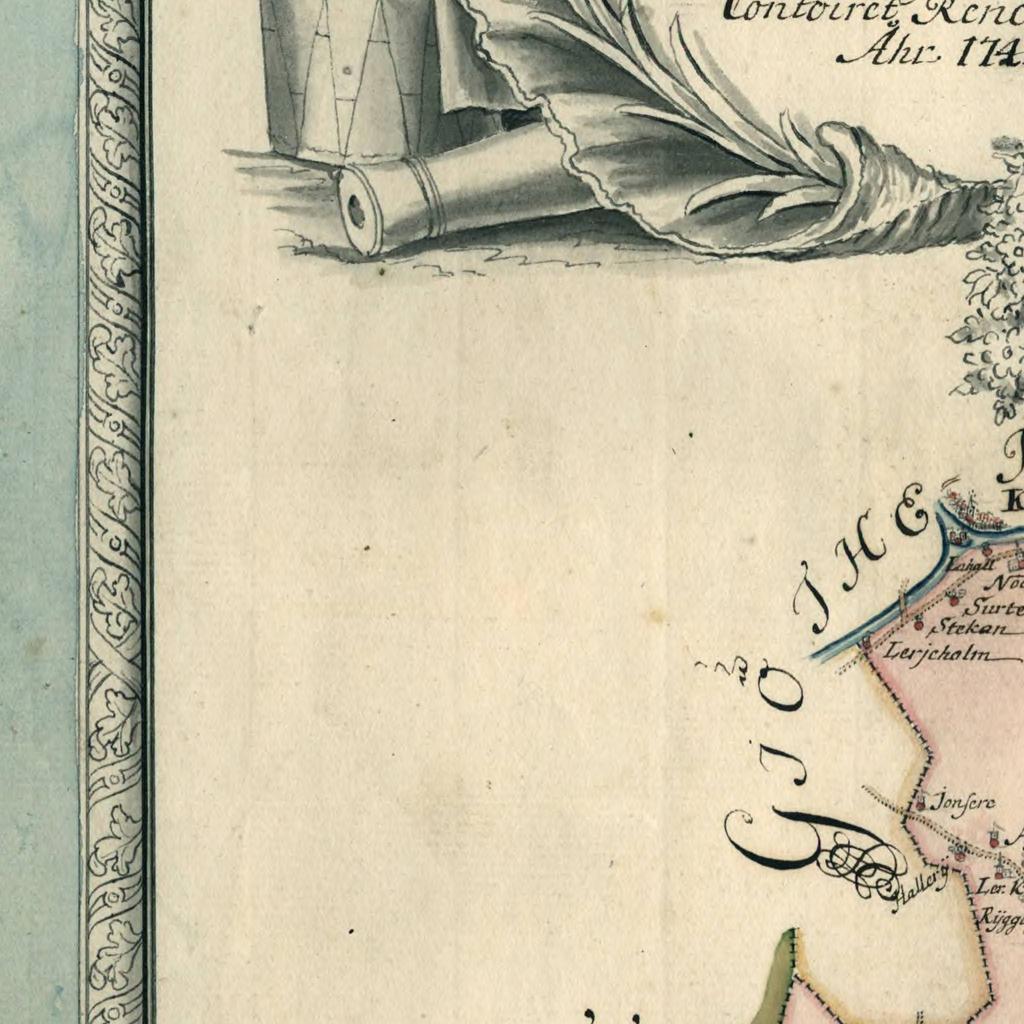 Contoiret, Renc
Åhr 174
GIÖTHE
K
Lahall
Surte
Stekan
Lerjeholm
Jonsere
Hallerÿ
Ler. K
Rÿgg